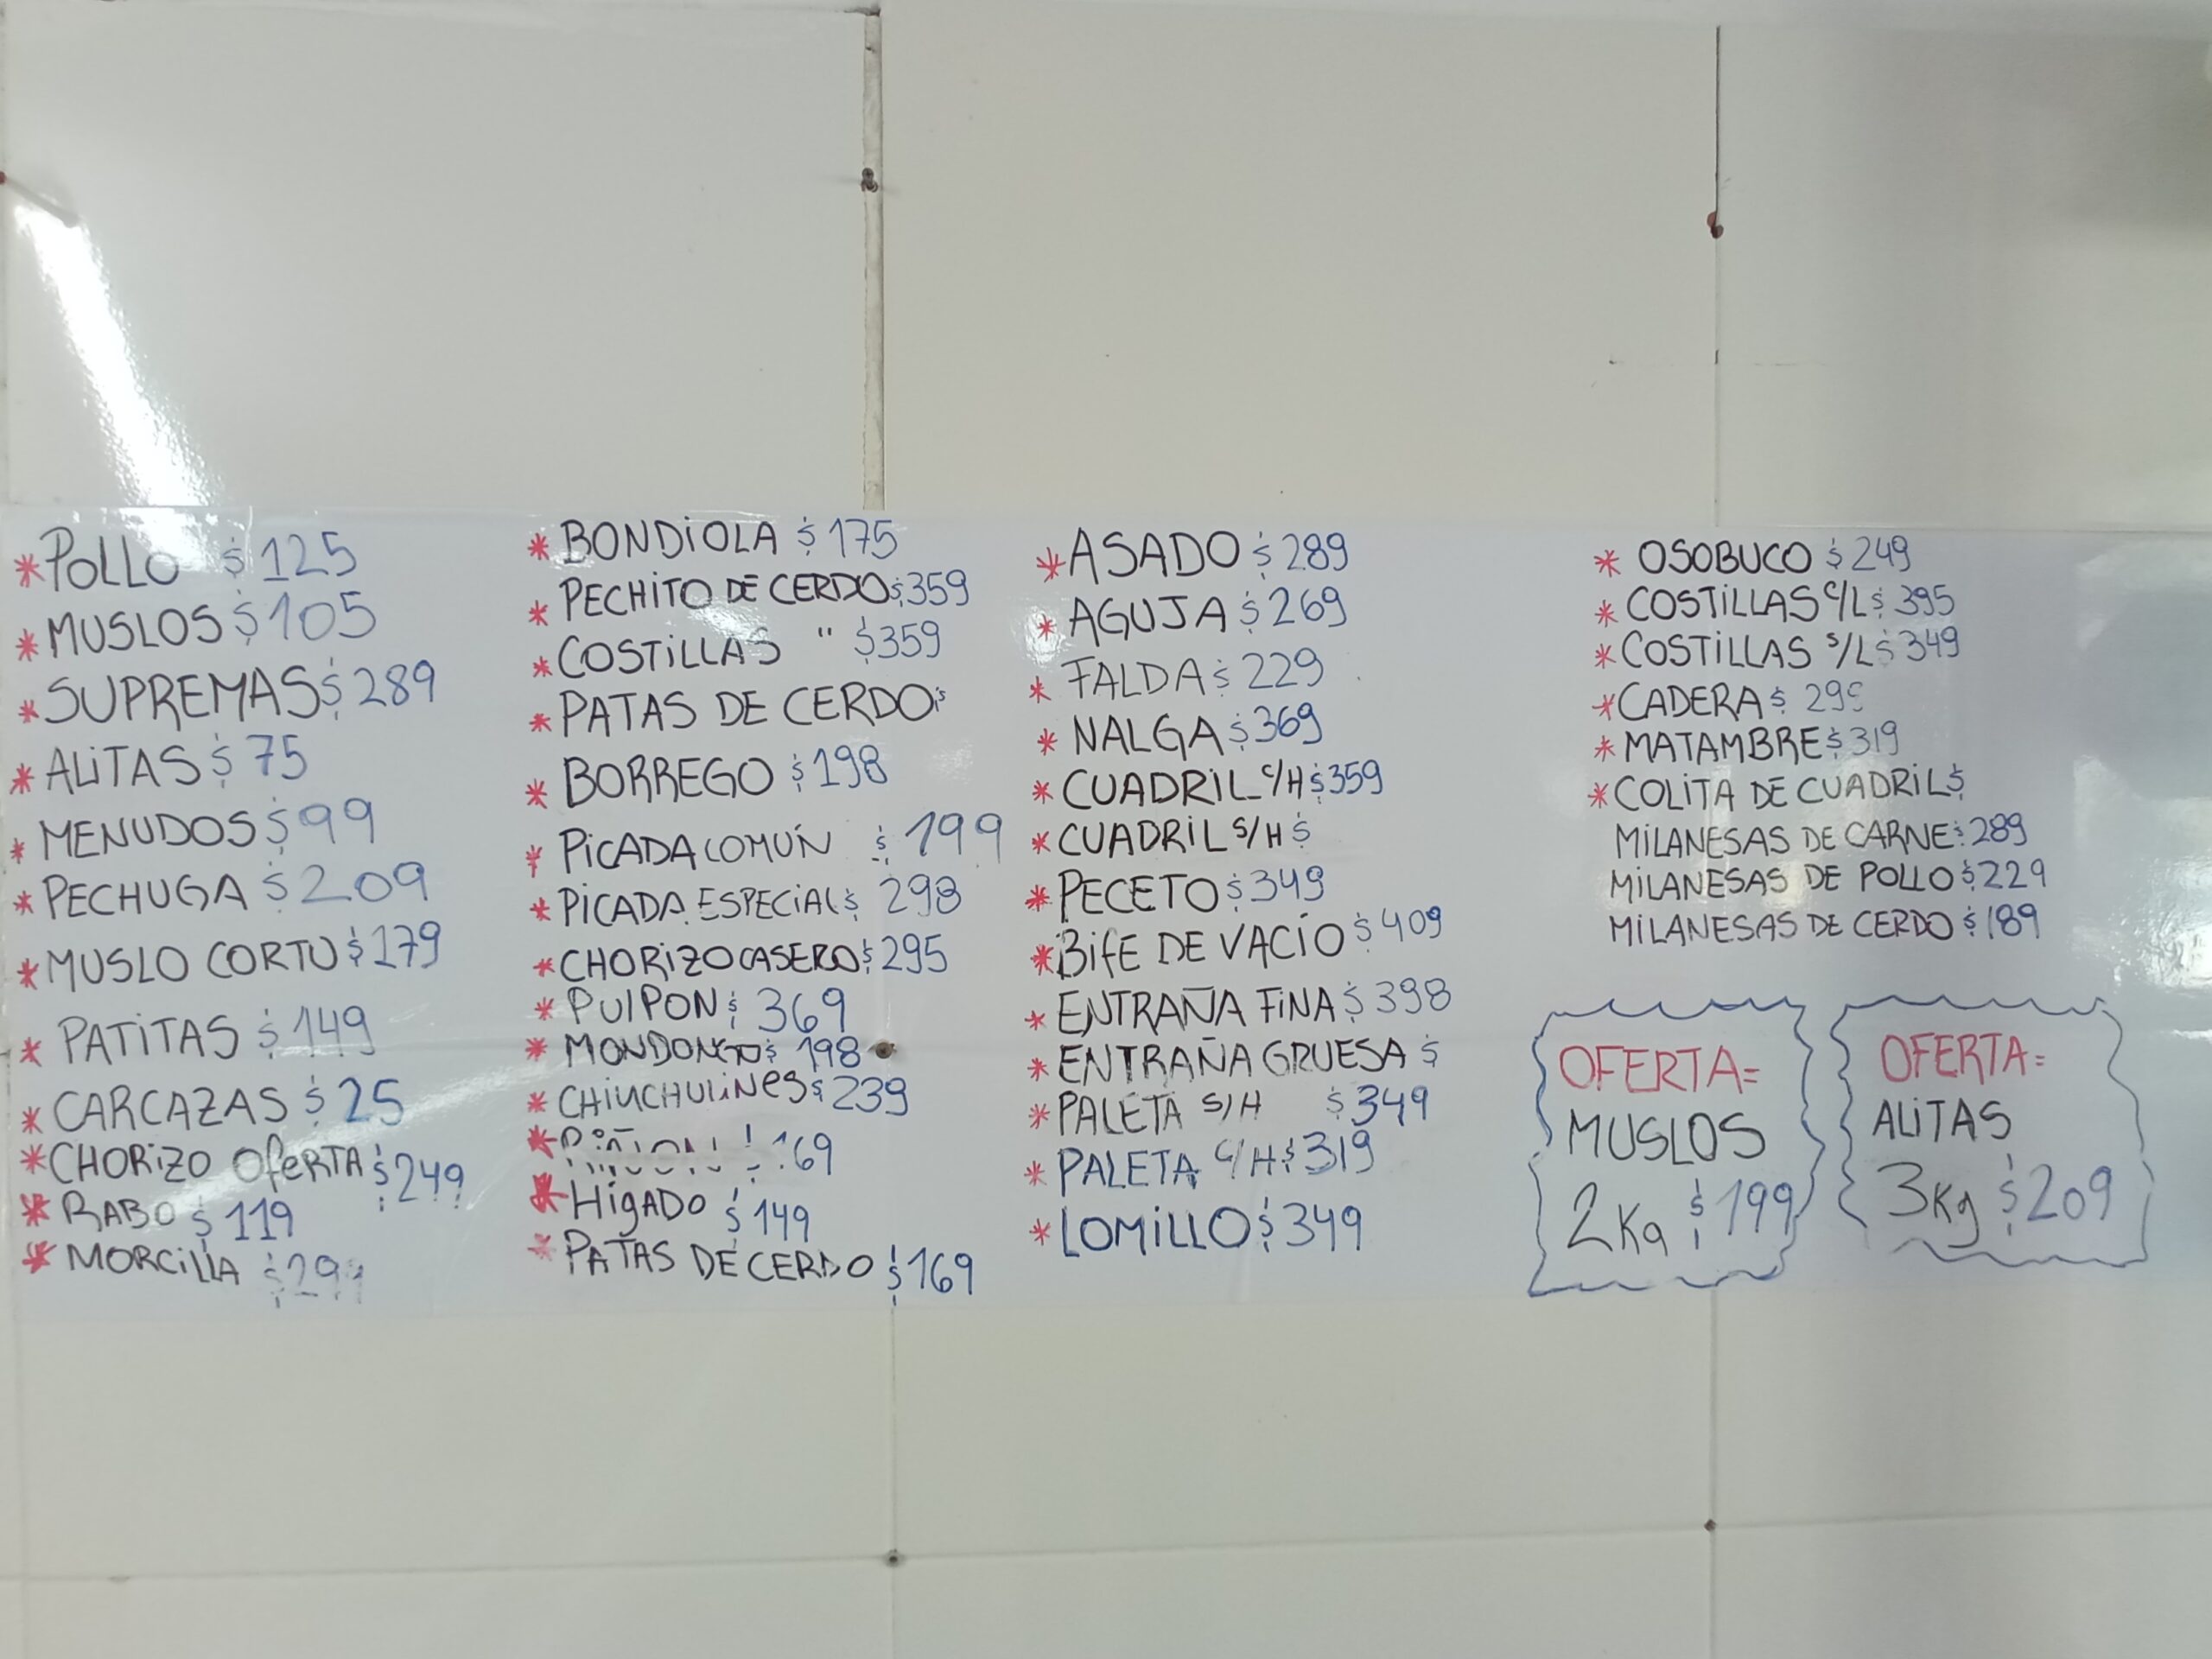 * POLLO $ 125
* MUSLOS $ 105
* SUPREMAS $ 289
* ALITAS $ 75
* MENUDOS $ 99
* PECHUGA $ 209
* MUSLO CORTO $ 179
* PATITAS $ 149
* CARCAZAS $ 25
* CHORIZO OfERTA $ 249
* RABO $ 119
* MORCILLA
* BONDIOLA $ 175
* PECHITO DE CERDO $ 359
* COSTILLAS " $ 359
* PATAS DE CERDO $
* BORREGO $ 198
* PICADA COMÚN $ 199
* PICADA ESPECIAL $ 298
* CHORIZO CASERO $ 295
* PULPON $ 369
* MONDONGO $ 198
* CHINCHULINES $ 239
* RIÑON 169
* HÍGADO $ 149
* PATAS DE CERDO $ 169
* ASADO $ 289
* AGUJA $ 269
* FALDA $ 229
* NALGA $ 369
* CUADRIL C/H $ 359
* CUADRIL S/H $
* PECETO $ 349
* BIFE DE VACÍO $ 409
* ENTRAÑA FINA $ 398
* ENTRAÑA GRUESA $
* PALETA S/H $ 349
* PALETA C/H $ 319
* LOMILLO $ 349
* OSOBUCO $ 249
* COSTILLAS C/L $ 395
* COSTILLAS S/L $ 349
* CADERA $
* MATAMBRE $ 319
* COLITA DE CUADRIL $
MILANESAS DE CARNE $ 289
MILANESAS DE POLLO $ 229
MILANESAS DE CERDO $ 189
OFERTA=
MUSLOS
2Kg $ 199
OFERTA=
ALITAS
3Kg $ 209